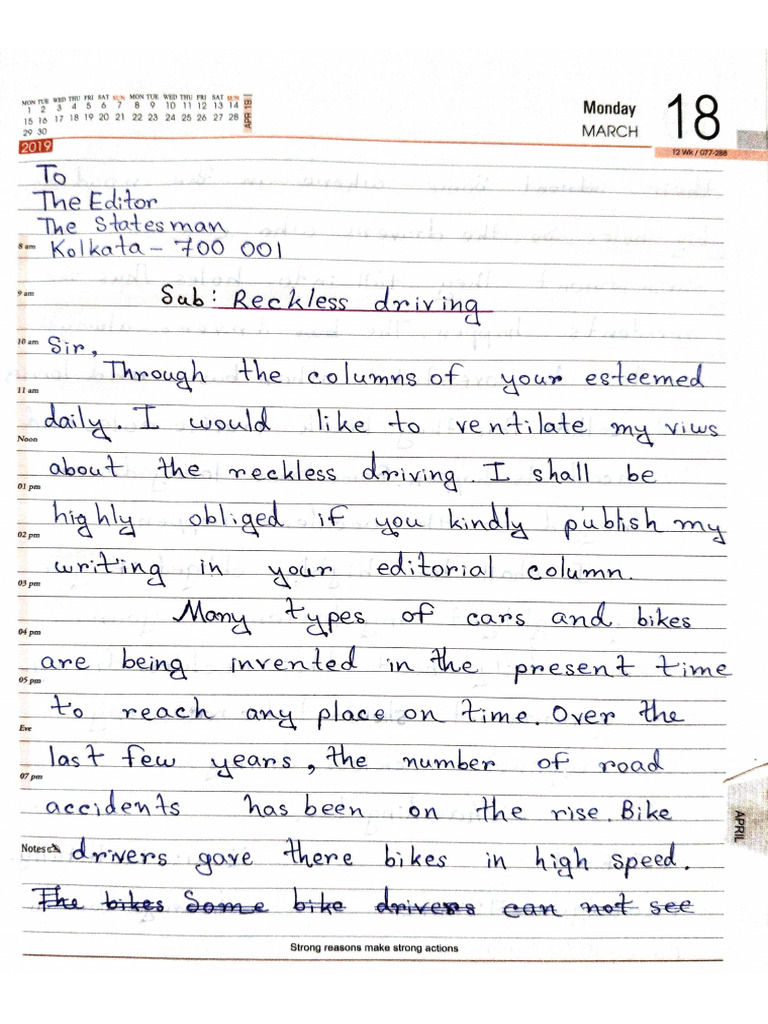 MON TUE WED THU FRI SAT SUN MON TUE WED THU FRI SAT SUN
1 2 3 4 5 6 7 8 9 10 11 12 13 14
15 16 17 18 19 20 21 22 23 24 25 26 27 28
29 30
APR 19
2019
Monday
MARCH
18
12 Wk / 077-288
To
The Editor
The Statesman
8 am Kolkata - 700 001
9 am Sub: Reckless driving
10 am Sir,
Through the columns of your esteemed
11 am
daily. I would like to ventilate my viws
Noon
about the reckless driving. I shall be
01 pm
highly obliged if you kindly publish my
02 pm
writing in your editorial column.
03 pm
Many types of cars and bikes
04 pm
are being invented in the present time
05 pm
to reach any place on time. Over the
Eve
last few years, the number of road
07 pm
accidents has been on the rise. Bike
APRIL
Notes drivers gave there bikes in high speed.
The bikes Some bike drivers can not see
Strong reasons make strong actions